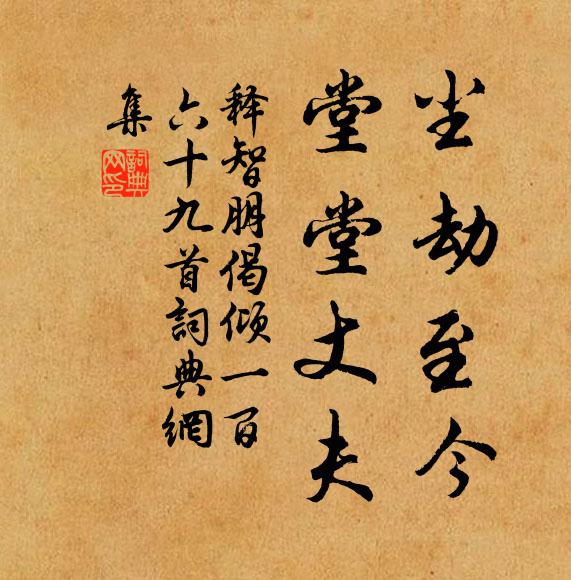 尘劫至今
堂堂丈夫
释智朋偈倾一百
六十九首詞典網
集
詞典
网印